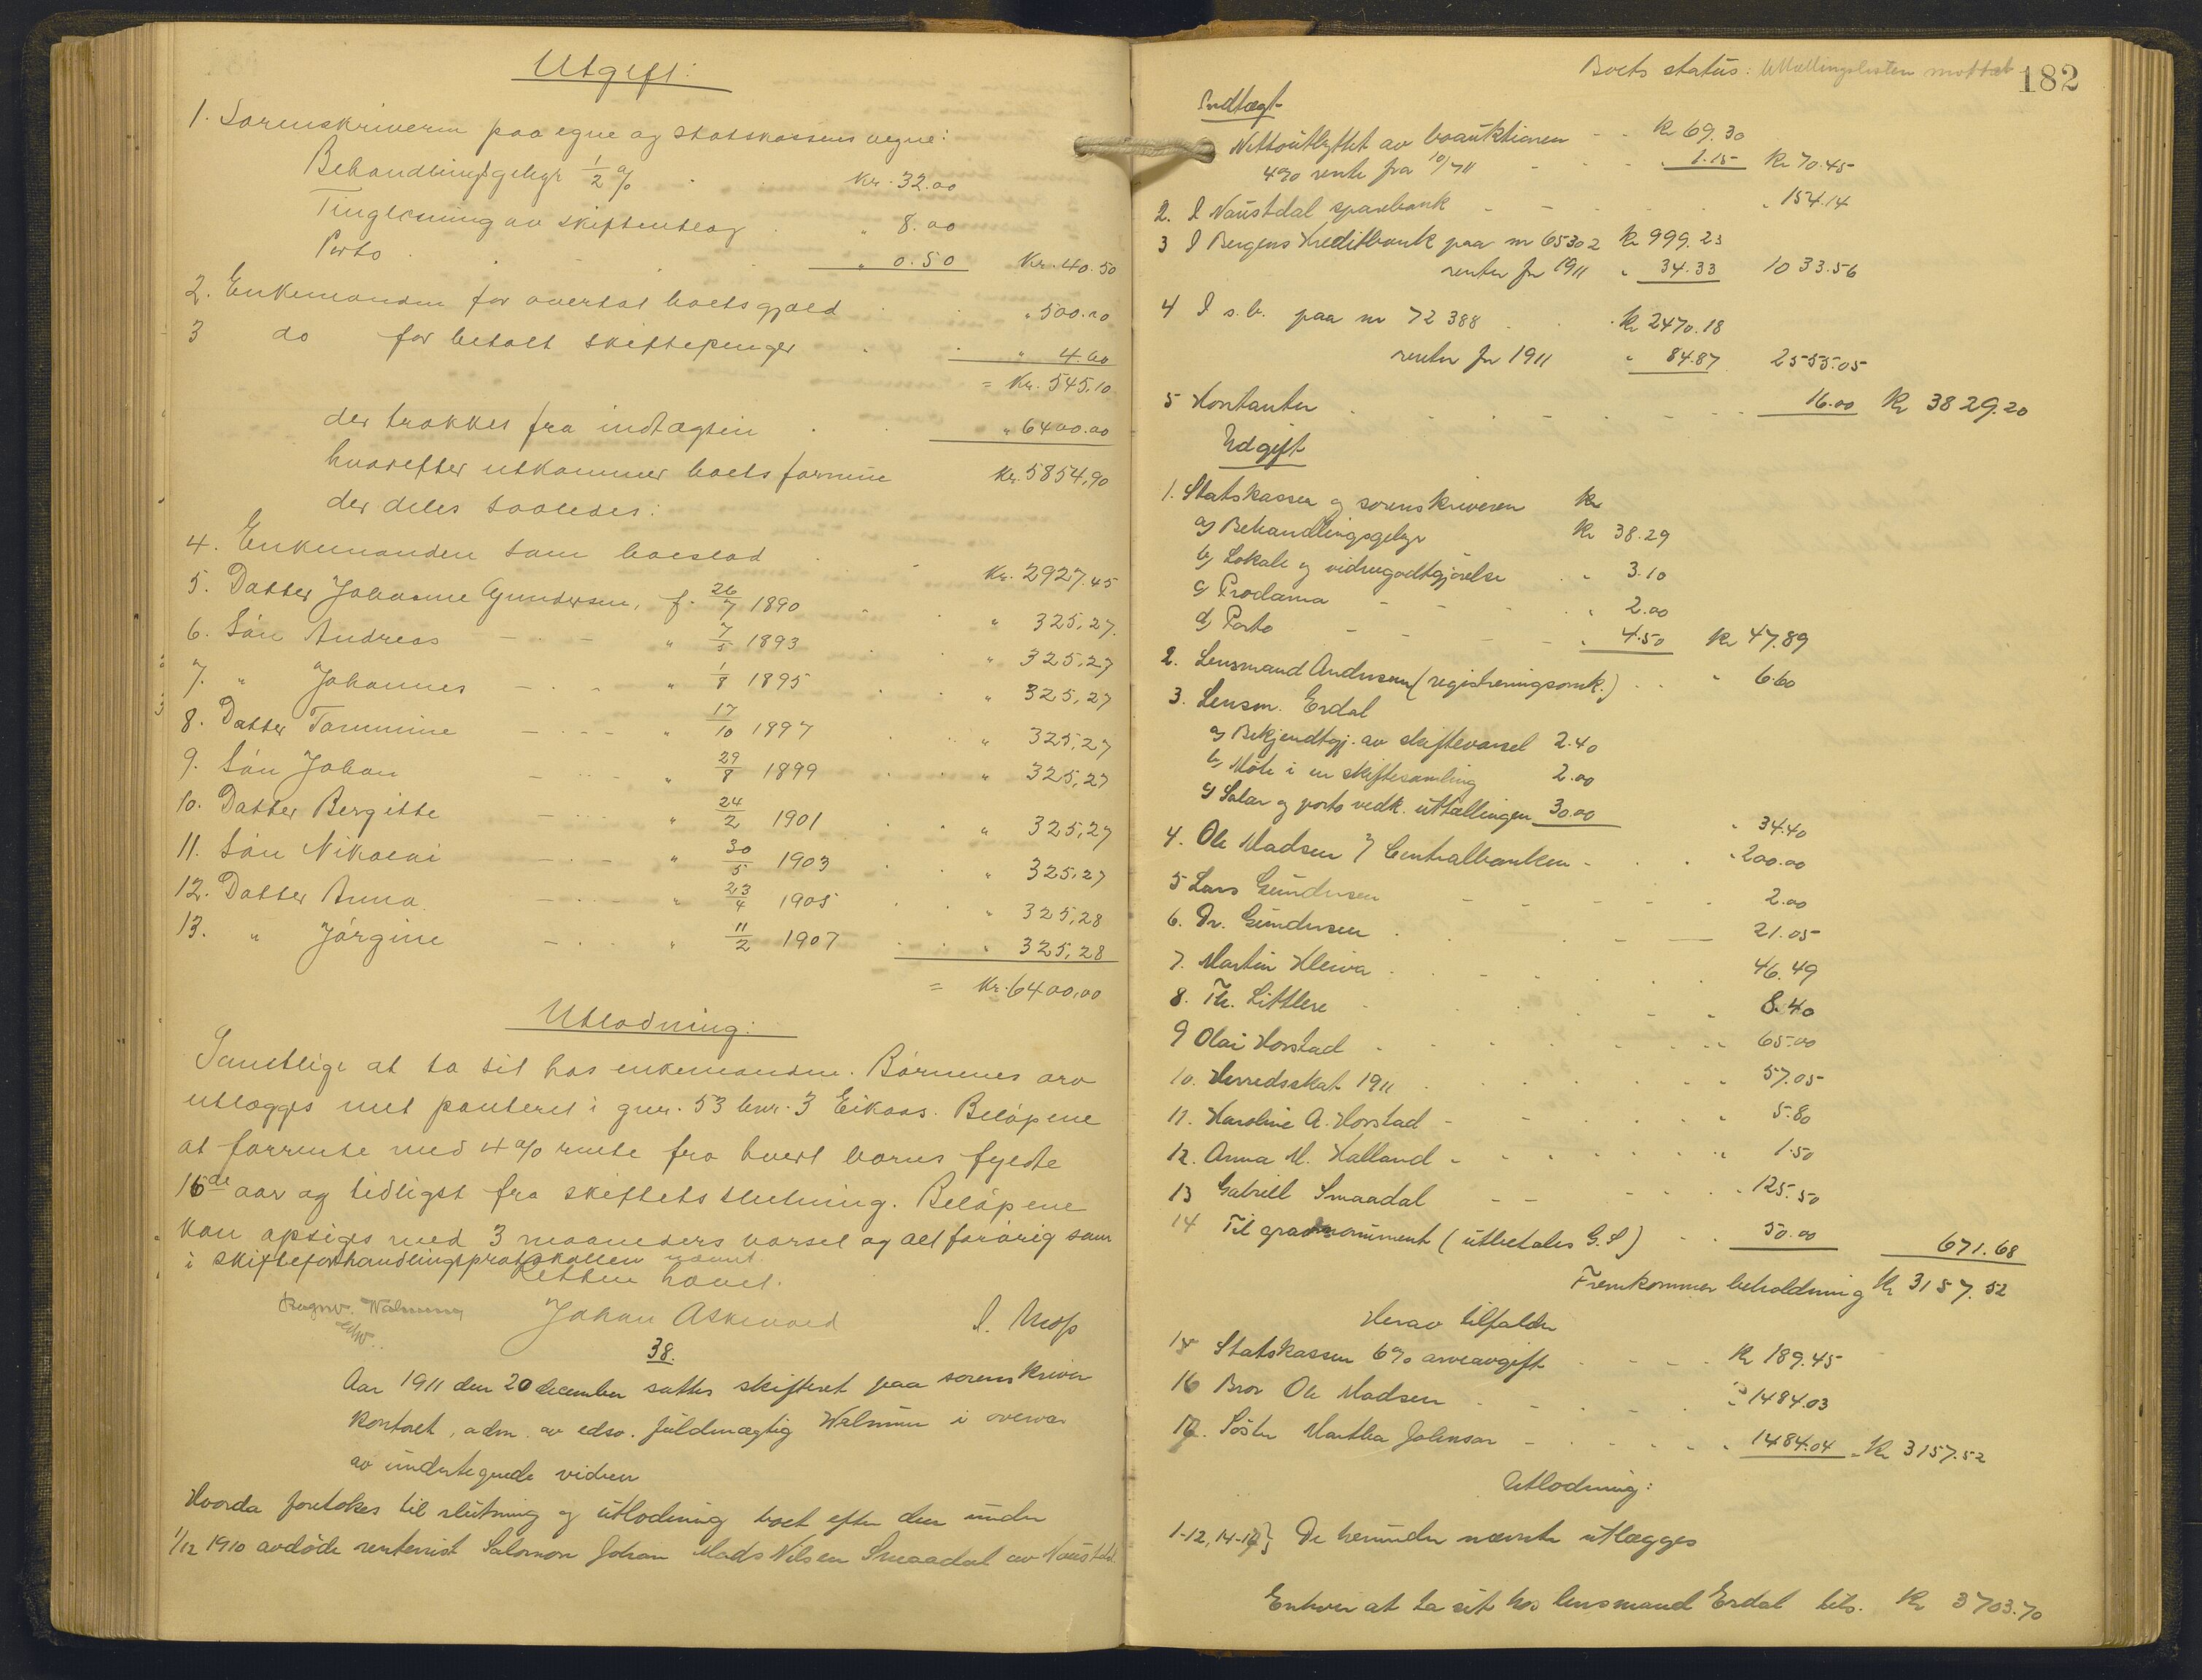 Utgift:
1. Sorenskriveren paa egne og statskassens vegne:
Behandlingsgebyr ½ % . . Kr. 32.00
Tinglæsning av skifteutlæg . " 8.00
Porto . . " 0.50 Kr. 40.50
2. Enkemanden for overtat boets gjæld . . " 500.00
3 do for betalt skiftepenger . . " 4.60
= Kr. 545,10
der trækkes fra indtægten . . " 6400.00
hvorefter utkommer boets formue Kr. 5854,90
der deles saaledes:
4. Enkemanden som boeslod . . Kr. 2927.45
5. Datter Johanne Gundersen, f. 26/7 1890 . . " 325,27.
6. Søn Andreas — . — " 7/5 1893 . . " 325,27
7. " Johannes — . — " 1/8 1895 . . " 325,27
8. Datter Tommine — . — " 17/10 1897 . . " 325,27
9. Søn Johan — . — " 29/8 1899 . . " 325,27
10. Datter Bergitte — . — " 24/2 1901 . . " 325,27
11. Søn Nikolai — . — " 30/5 1903 . . " 325,27
12. Datter Anna — . — " 23/4 1905 . . " 325,28
13. " Jørgine — . — " 11/2 1907 . . " 325,28
= Kr. 6400,00
Utlodning:
Samtlige at ta sit hos enkemanden. Børnenes arv
utlægges med panteret i gnr. 53 bnr. 3 Eikaas. Beløpene
at forrente med 4 % rente fra hvert barns fyldte
16de aar og tidligst fra skiftets slutning. Beløpene
kan opsiges med 3 maaneders varsel og alt forøvrig som
i skifteforhandlingsprotokollen nævnt.
Retten hævet.
Johan Askevold
38.
Aar 1911 den 20 december sattes skifteret paa sorenskriver
kontoret, adm. av edsv. fuldmægtig Walnum i overvær
av undertegnede vidner
Hvorda foretokes til slutning og utlodning boet efter den under
1/12 1910 avdøde rentenist Salomon Johan Mads Nilsen Smaadal av Naustdal.
Boets status: Uttællingslisten mottat
182
Indtægt
Nettoutbyttet av boauktionen - - Kr 69.30
4% rente fra 10/7 11 - - - " 1.15 Kr 70.45
2. I Naustdal sparebank - - - - " 154.14
3 I Bergens Kreditbank paa nr 65302 Kr 999.23
renter for 1911 " 34.33 1033.56
4 I s.b. paa nr 72388 . . Kr 2470.18
renter for 1911 " 84.87 2555.05
5 Kontanter . - . - . - - 16.00 Kr 3829.20
Udgift
1. Statskassen og sorenskriveren Kr
a) Behandlingsgebyr Kr 38.29
b) Lokale og vidnegodtgjørelse . " 3.10
c) Proclama - - - . " 2.00
d) Porto - - - - " 4.50 Kr 47.89
2. Lensmand Andersen (registreringsomk.) . . " 6.60
3. Lensm. Erdal
a) Bekjendtgj. av skiftevarsel 2.40
b) Møte i en skiftesamling 2.00
c) Salær og porto vedk. uttællingen 30.00 " 34.40
4. Ole Madsen / Centralbanken - . . " 200.00
5 Lars Gundersen - - - - . 2.00
6. Dr. Gundersen . . - - — 21.05
7. Martin Kleiva . . . - . . 46.49
8. Th. Littlere - . . - " 8.40
9 Olai Horstad - . . . - " 65.00
10. Herredsskat 1911 . . . . " 57.05
11. Karoline A. Horstad - - . . " 5.80
12. Anna M. Halland - - - - - " 1.50
13 Gabriell Smaadal - - - . . " 125.50
14 Til gravmonument (utbetales G.S) - . 50.00 671.68
Fremkommer beholdning Kr 3157.52
Herav tilfalder
15 Statskassen 6% arveavgift . - - . Kr 189.45
16 Bror Ole Madsen . - . - . " 1484.03
17. Søster Martha Johnson - . . - . " 1484.04 - Kr 3157.52
Utlodning:
1-12, 14-17} De herunder nævnte utlægges
Enhver at ta sit hos lensmand Erdal tils. Kr 3703.70